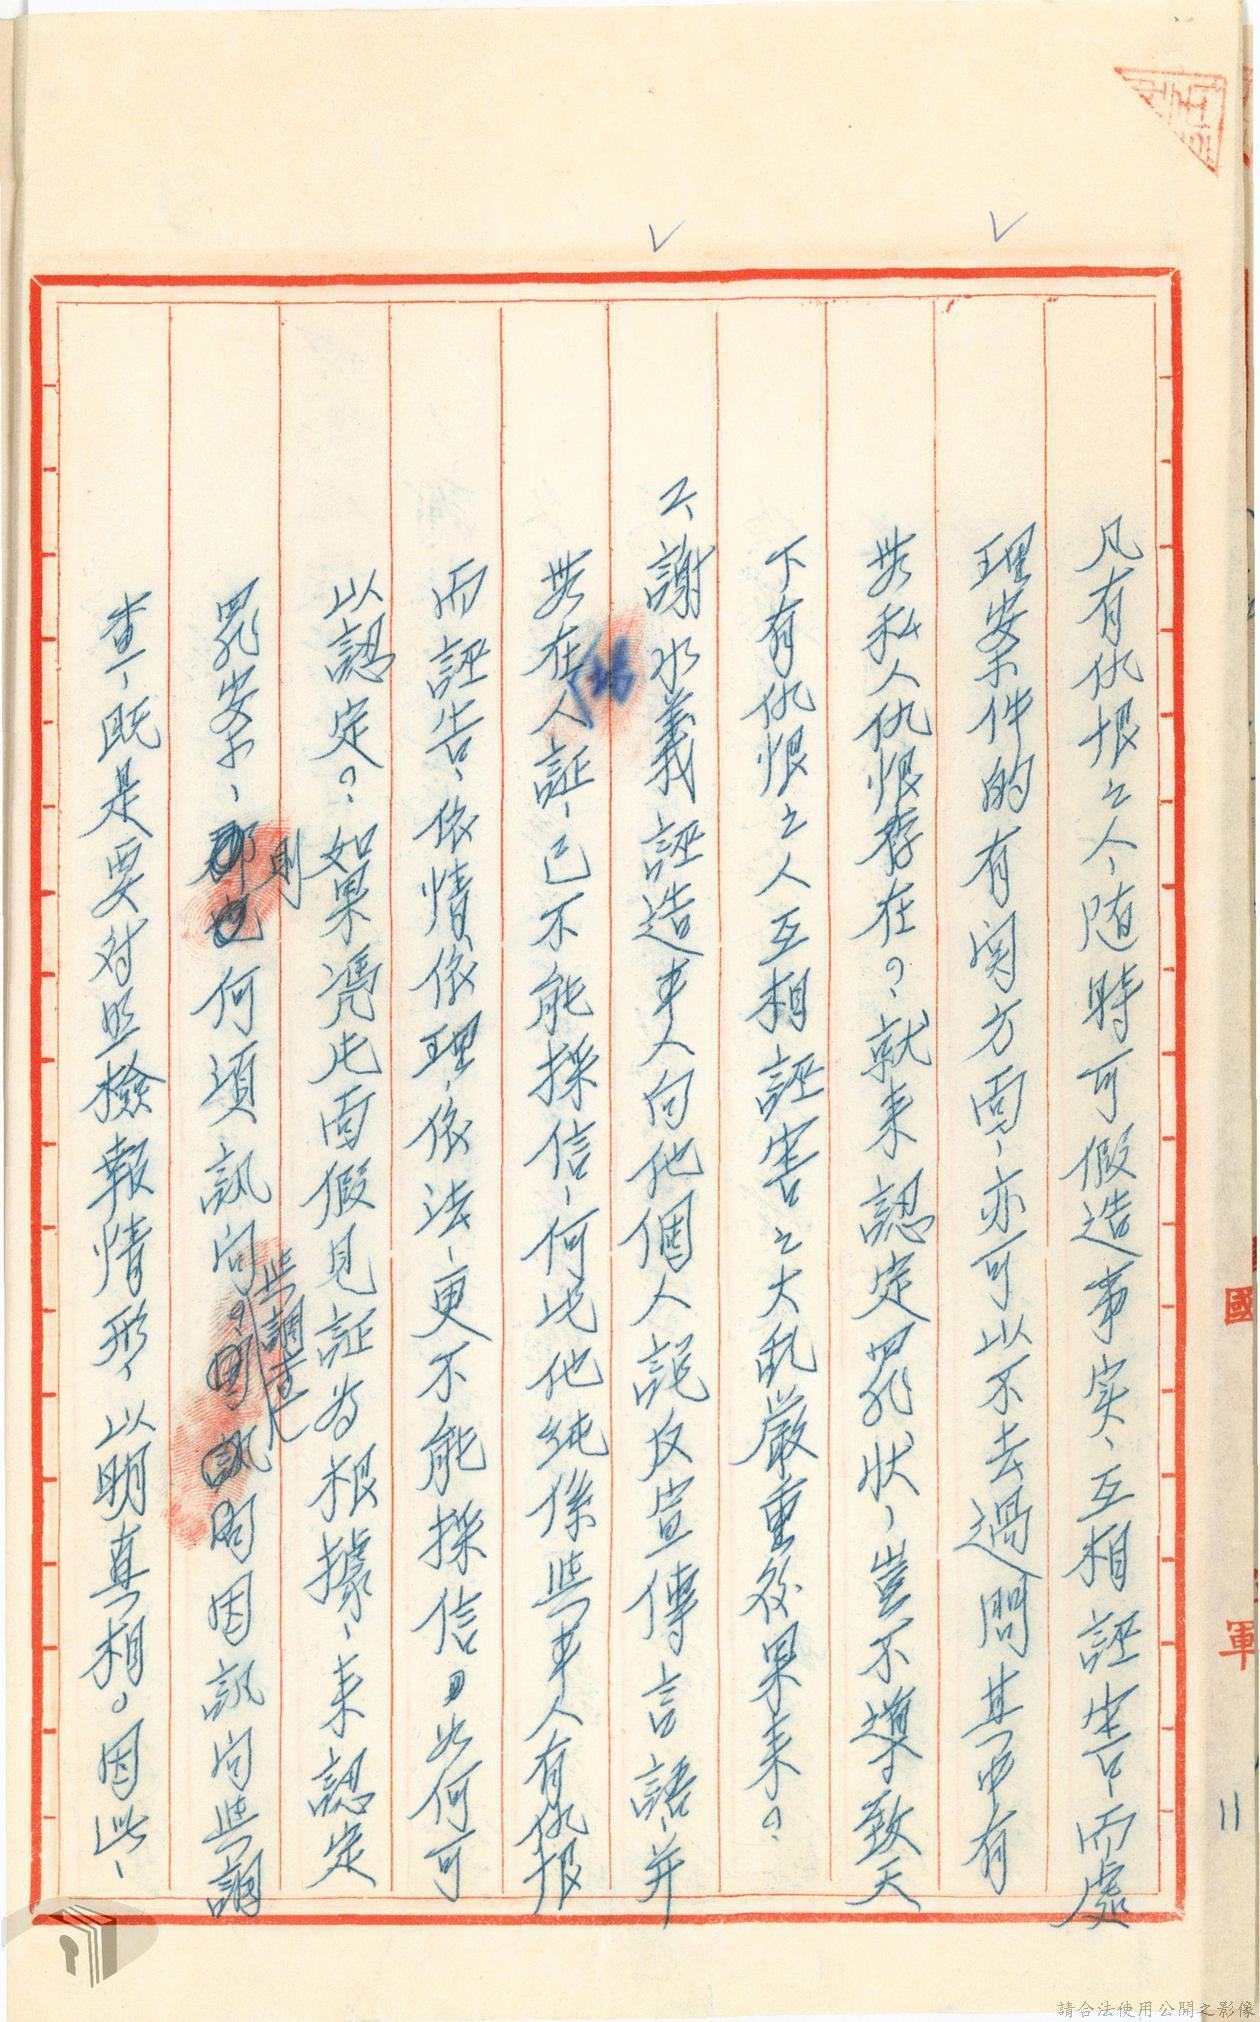 凡有仇恨之人、随時可假造事实、互相誣害、而處
理案件的有関方面、亦可以不去過問其中有
無私人仇恨存在？、就来認定罪状、豈不導致天
下有仇恨之人互相誣害之大乱嚴重後果来？
2、謝水義誣造本人向他個人説反宣傳言語、并
無在人証、已不能採信、何况他純係与本人有仇报
而誣告、依情、依理、依法、更不能採信。如何可
以認定？、如果凭此面假見証為根據、来認定
罪案、則何須訊问？
与調查
因訊问与調
查、既是要对照檢報情形、以明真相。因此、
國
軍
11
請合法使用公開之影像